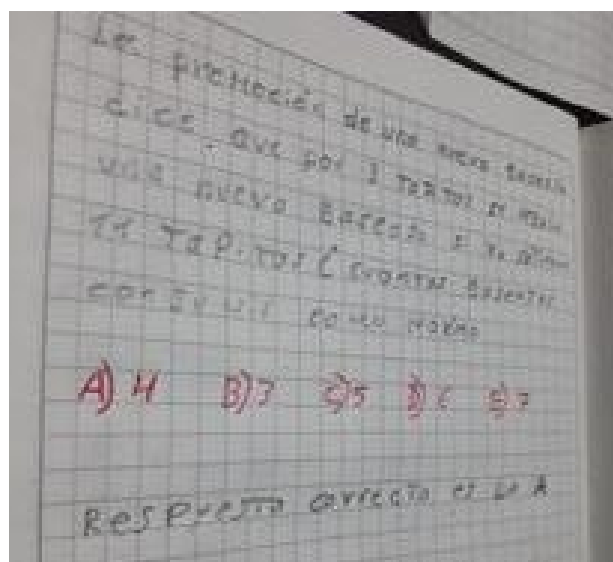 La promoción de una nueva gaseosa
dice que por 3 tapitas
una nueva gaseosa
11 tapitas ¿ cuantas gaseosas
como maximo
A) 4 B) 3 C) 5 D) 6 E) 7
Respuesta correcta es la A